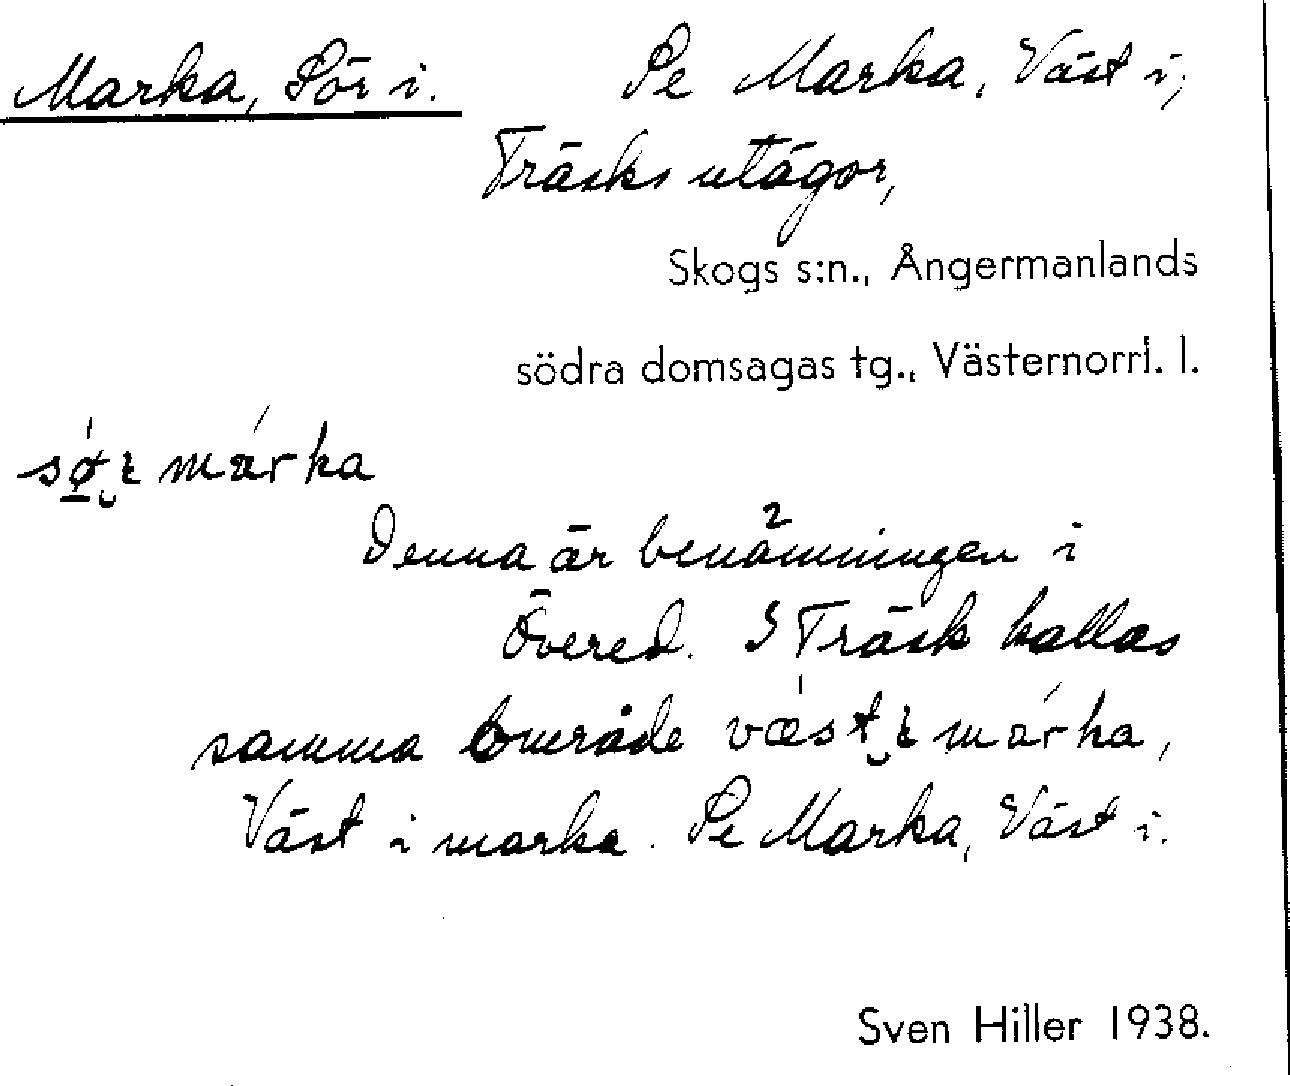 Marka, Sör i. Se Marka, Väst i,
Träsks utägor,
Skogs s:n., Ångermanlands
södra domsagas tg., Västernorrl. l.
sø̱ ̮ɩ márka
Denna är benämningen i
Övered. I Träsk kallas
samma område væst ̮ɩ márka,
Väst i marka. Se Marka, Väst i.
Sven Hiller 1938.